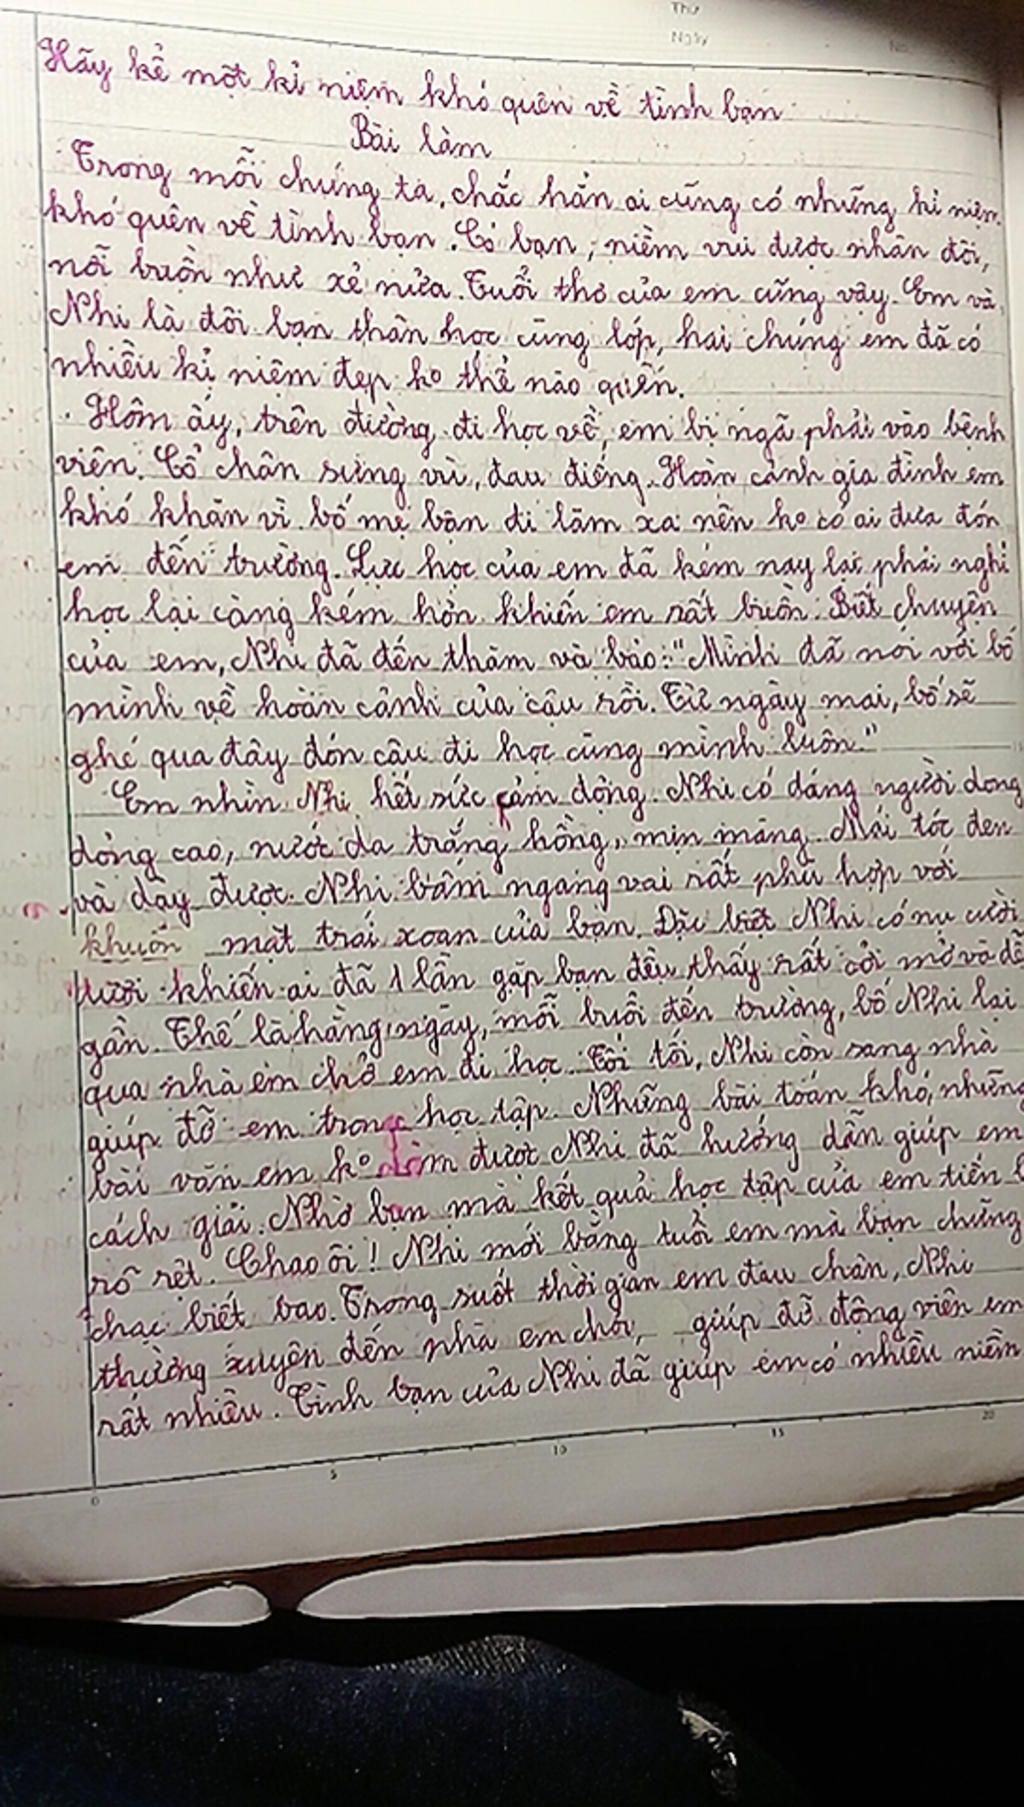 Thứ
Ngày
No.
Hãy kể một kỉ niệm khó quên về tình bạn
Bài làm
Trong mỗi chúng ta, chắc hẳn ai cũng có những kỉ niệm
khó quên về tình bạn. Có bạn, niềm vui được nhân đôi,
nỗi buồn như xẻ nửa. Tuổi thơ của em cũng vậy. Em và
Nhi là đôi bạn thân học cùng lớp, hai chúng em đã có
nhiều kỉ niệm đẹp ko thể nào quên.
Hôm ấy, trên đường đi học về, em bị ngã phải vào bệnh
viện. Cổ chân sưng vù, đau điếng. Hoàn cảnh gia đình em
khó khăn vì bố mẹ bận đi làm xa nên ko có ai đưa đón
em đến trường. Lực học của em đã kém nay lại phải nghỉ
học lại càng kém hơn khiến em rất buồn. Biết chuyện
của em, Nhi đã đến thăm và bảo: "Mình đã nói với bố
mình về hoàn cảnh của cậu rồi. Từ ngày mai, bố sẽ
ghé qua đây đón cậu đi học cùng mình luôn."
Em nhìn Nhi hết sức cảm động. Nhi có dáng người dong
dỏng cao, nước da trắng hồng, mịn màng. Mái tóc đen
và dày được Nhi bấm ngang vai rất phù hợp với
khuôn mặt trái xoan của bạn. Đặc biệt Nhi có nụ cười
tươi khiến ai đã 1 lần gặp bạn đều thấy rất cởi mở và dễ
gần. Thế là hằng ngày, mỗi buổi đến trường, bố Nhi lại
qua nhà em chở em đi học. Tối tối, Nhi còn sang nhà
giúp đỡ em trong học tập. Những bài toán khó, những
bài văn em ko làm được Nhi đã hướng dẫn giúp em
cách giải. Nhờ bạn mà kết quả học tập của em tiến
rõ rệt. Chao ôi! Nhi mới bằng tuổi em mà bạn chững
chạc biết bao. Trong suốt thời gian em đau chân, Nhi
thường xuyên đến nhà em chơi, giúp đỡ động viên em
rất nhiều. Tình bạn của Nhi đã giúp em có nhiều niềm
0 5 10 15 20